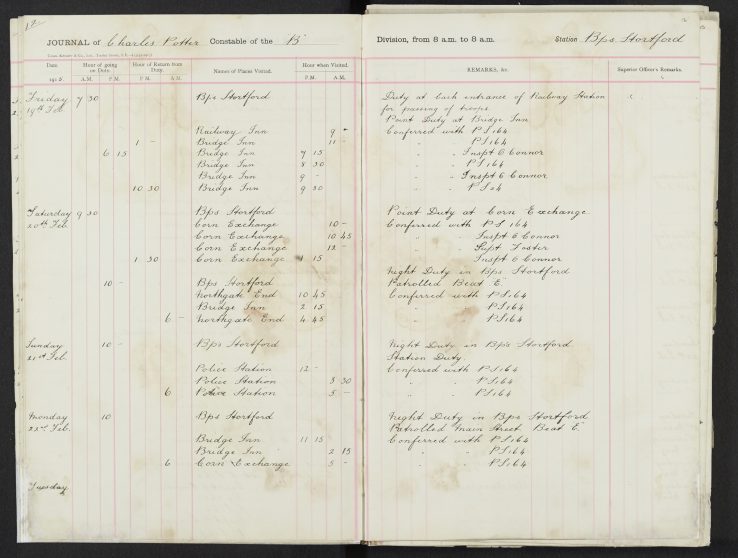 12
JOURNAL of Charles Potter Constable of the "B" Division, from 8 a.m. to 8 a.m. Station Bps. Stortford
Date Hour of going on Duty. Hour of Return from Duty. Names of Places Visited. Hour when Visited. REMARKS, &c. Superior Officer's Remarks.
1915. A.M. P.M. P.M. A.M. P.M. A.M.
Friday 7 30 Bps Stortford Duty at Each entrance of Railway Station
19th Feb for passing of troops.
Point Duty at Bridge Inn
Railway Inn 9 - Conferred with PS 164
1 - Bridge Inn 11 - " " PS 164
6 15 Bridge Inn 7 15 " " Inspt O'Connor
Bridge Inn 8 30 " " PS 164
Bridge Inn 9 - " " Inspt O'Connor
10 30 Bridge Inn 9 30 " " PS 24
Saturday 9 30 Bps Stortford Point Duty at Corn Exchange
20th Feb. Corn Exchange 10 - Conferred with PS 164
Corn Exchange 10 45 " " Inspt O'Connor
Corn Exchange 12 - " " Supt Foster
1 30 Corn Exchange 1 15 " " Inspt O'Connor
Night Duty in Bps Stortford
10 - Bps Stortford Patrolled Beat E.
Northgate End 10 45 Conferred with PS 164
Bridge Inn 2 15 " " PS 164
6 - Northgate End 4 45 " " PS 164
Sunday 10 - Bps Stortford Night Duty in Bps Stortford
21st Feb. Station Duty.
Police Station 12 - Conferred with PS 164
Police Station 3 30 " " PS 164
6 Police Station 5 - " " PS 164
Monday 10 Bps Stortford Night Duty in Bps Stortford
22nd Feb. Patrolled Main Street Beat E.
Bridge Inn 11 15 Conferred with PS 164
Bridge Inn 2 15 " " PS 164
6 Corn Exchange 5 - " " PS 164
Tuesday